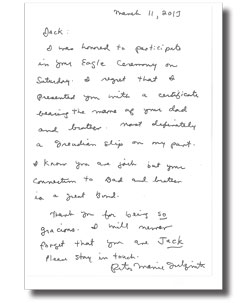 March 11, 2017
Jack:
I was honored to participate
in your Eagle Ceremony on
Saturday. I regret that I
presented you with a certificate
bearing the name of your dad
and brother. Most definitely
a Freudian slip on my part.
I know you are Jack but your
connection to Dad and brother
is a great bond.
Thank you for being so
gracious. I will never
forget that you are Jack
Please stay in touch.
Marie